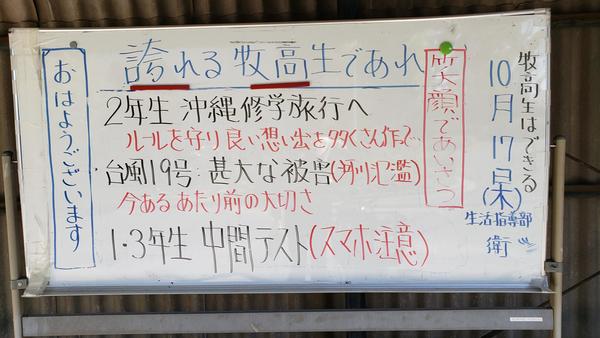 牧高生はできる
10月17日(木)
生活指導部 衛
笑顔であいさつ
誇れる牧高生であれ
2年生 沖縄修学旅行へ
ルールを守り良い想い出を多くさん作って…
台風19号 甚大な被害(河川氾濫)
今あるあたり前の大切さ
1・3年生 中間テスト(スマホ注意)
おはようございます